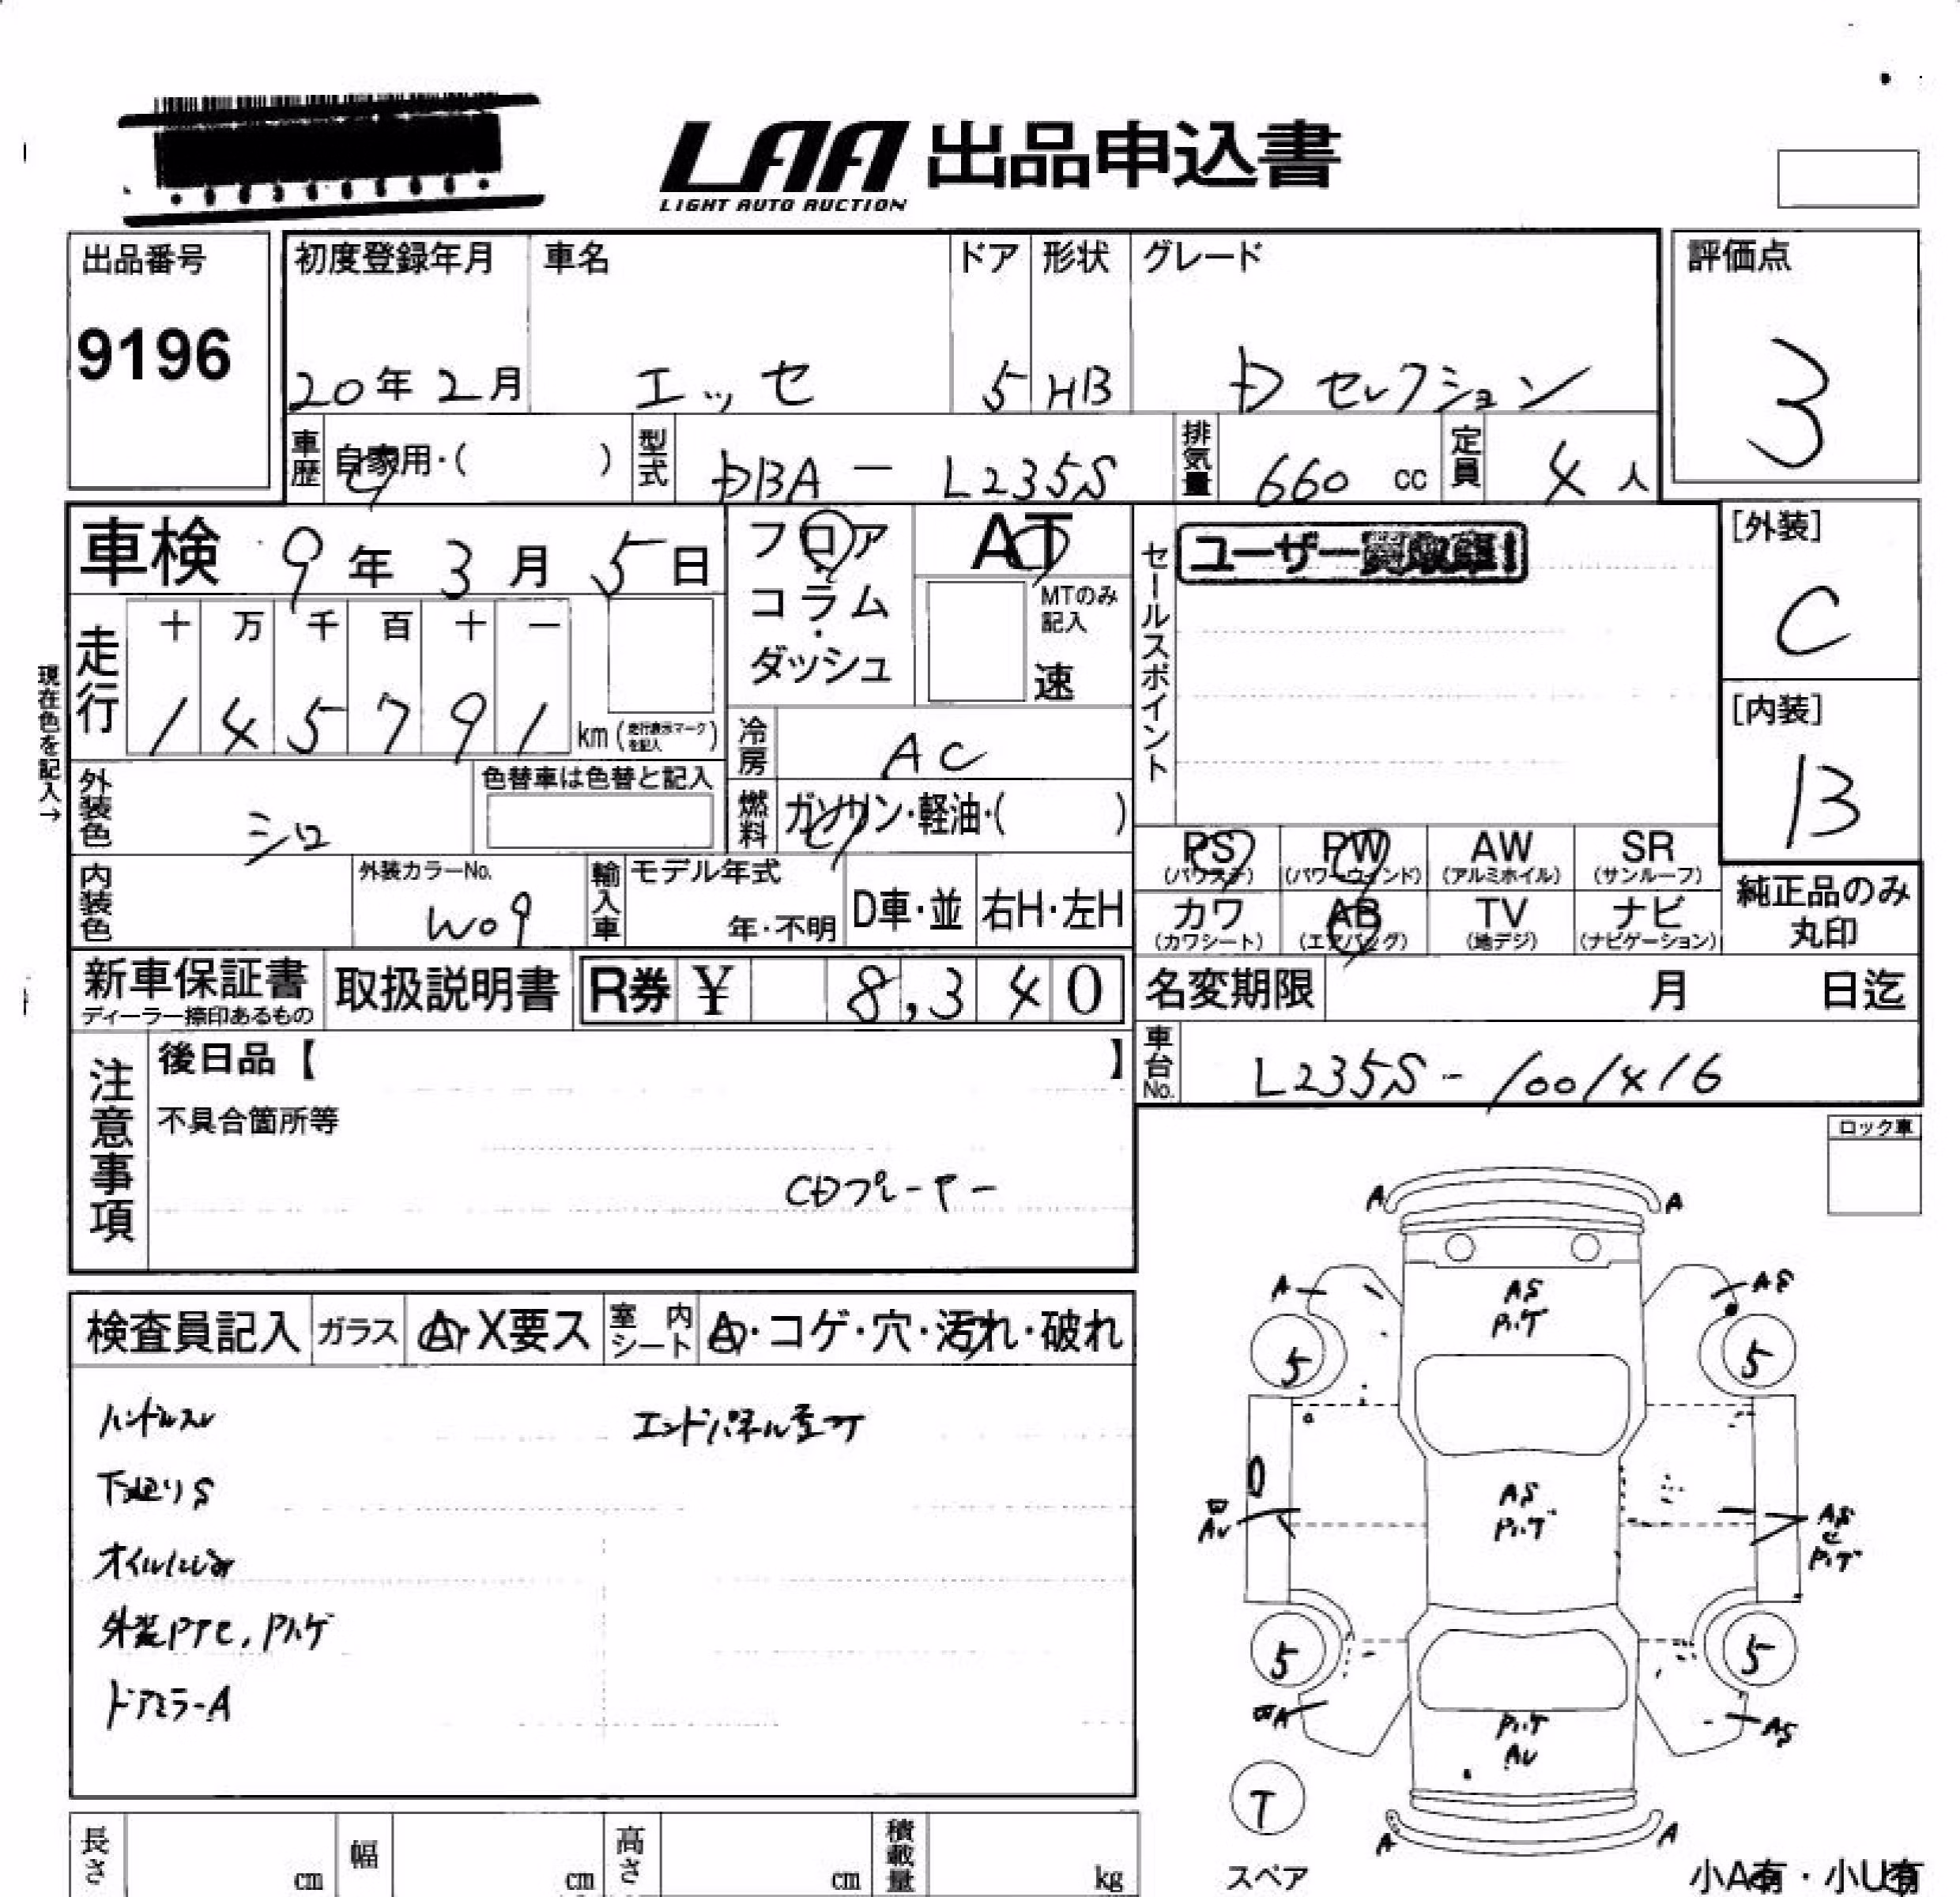 LAA 出品申込書
LIGHT AUTO AUCTION
出品番号
9196
初度登録年月
20年2月
車名
エッセ
ドア
5
形状
HB
グレード
Dセレクション
評価点
3
車歴
自家用・( )
型式
DBA - L235S
排気量
660 cc
定員
4人
車検 9年3月5日
フロア・コラム・ダッシュ
AT
MTのみ記入
速
セールスポイント
ユーザー買取車!
[外装]
C
[内装]
B
現在色を記入→
走行
十 万 千 百 十 一
1 4 5 7 9 1 km (走行表示マークを記入)
冷房
AC
外装色
シロ
色替車は色替と記入
燃料
ガソリン・軽油・( )
内装色
外装カラーNo.
W09
輸入車
モデル年式
年・不明
D車・並
右H・左H
PS
(パワステ)
PW
(パワーウィンド)
AW
(アルミホイル)
SR
(サンルーフ)
カワ
(カワシート)
AB
(エアバッグ)
TV
(地デジ)
ナビ
(ナビゲーション)
純正品のみ
丸印
新車保証書
ディーラー捺印あるもの
取扱説明書
R券 ¥ 8,340
名変期限 月 日迄
車台No.
L235S-1001416
注意事項
後日品【 】
不具合箇所等
CDプレーヤー
ロック車
検査員記入
ガラス
A・X要ス
室内シート
A・コゲ・穴・汚れ・破れ
ハンドルスレ
エンドパネル歪コケ
下廻りS
オイルにじみ
外装PTC, Pハゲ
ドアミラーA
A
A
A
AS
AS
Pハゲ
5
5
AS
Pハゲ
凹
AU
AS
C
Pハゲ
5
5
凹A
AS
Pハゲ
AU
T
スペア
A
A
小A有・小U有
長さ cm
幅 cm
高さ cm
積載量 kg